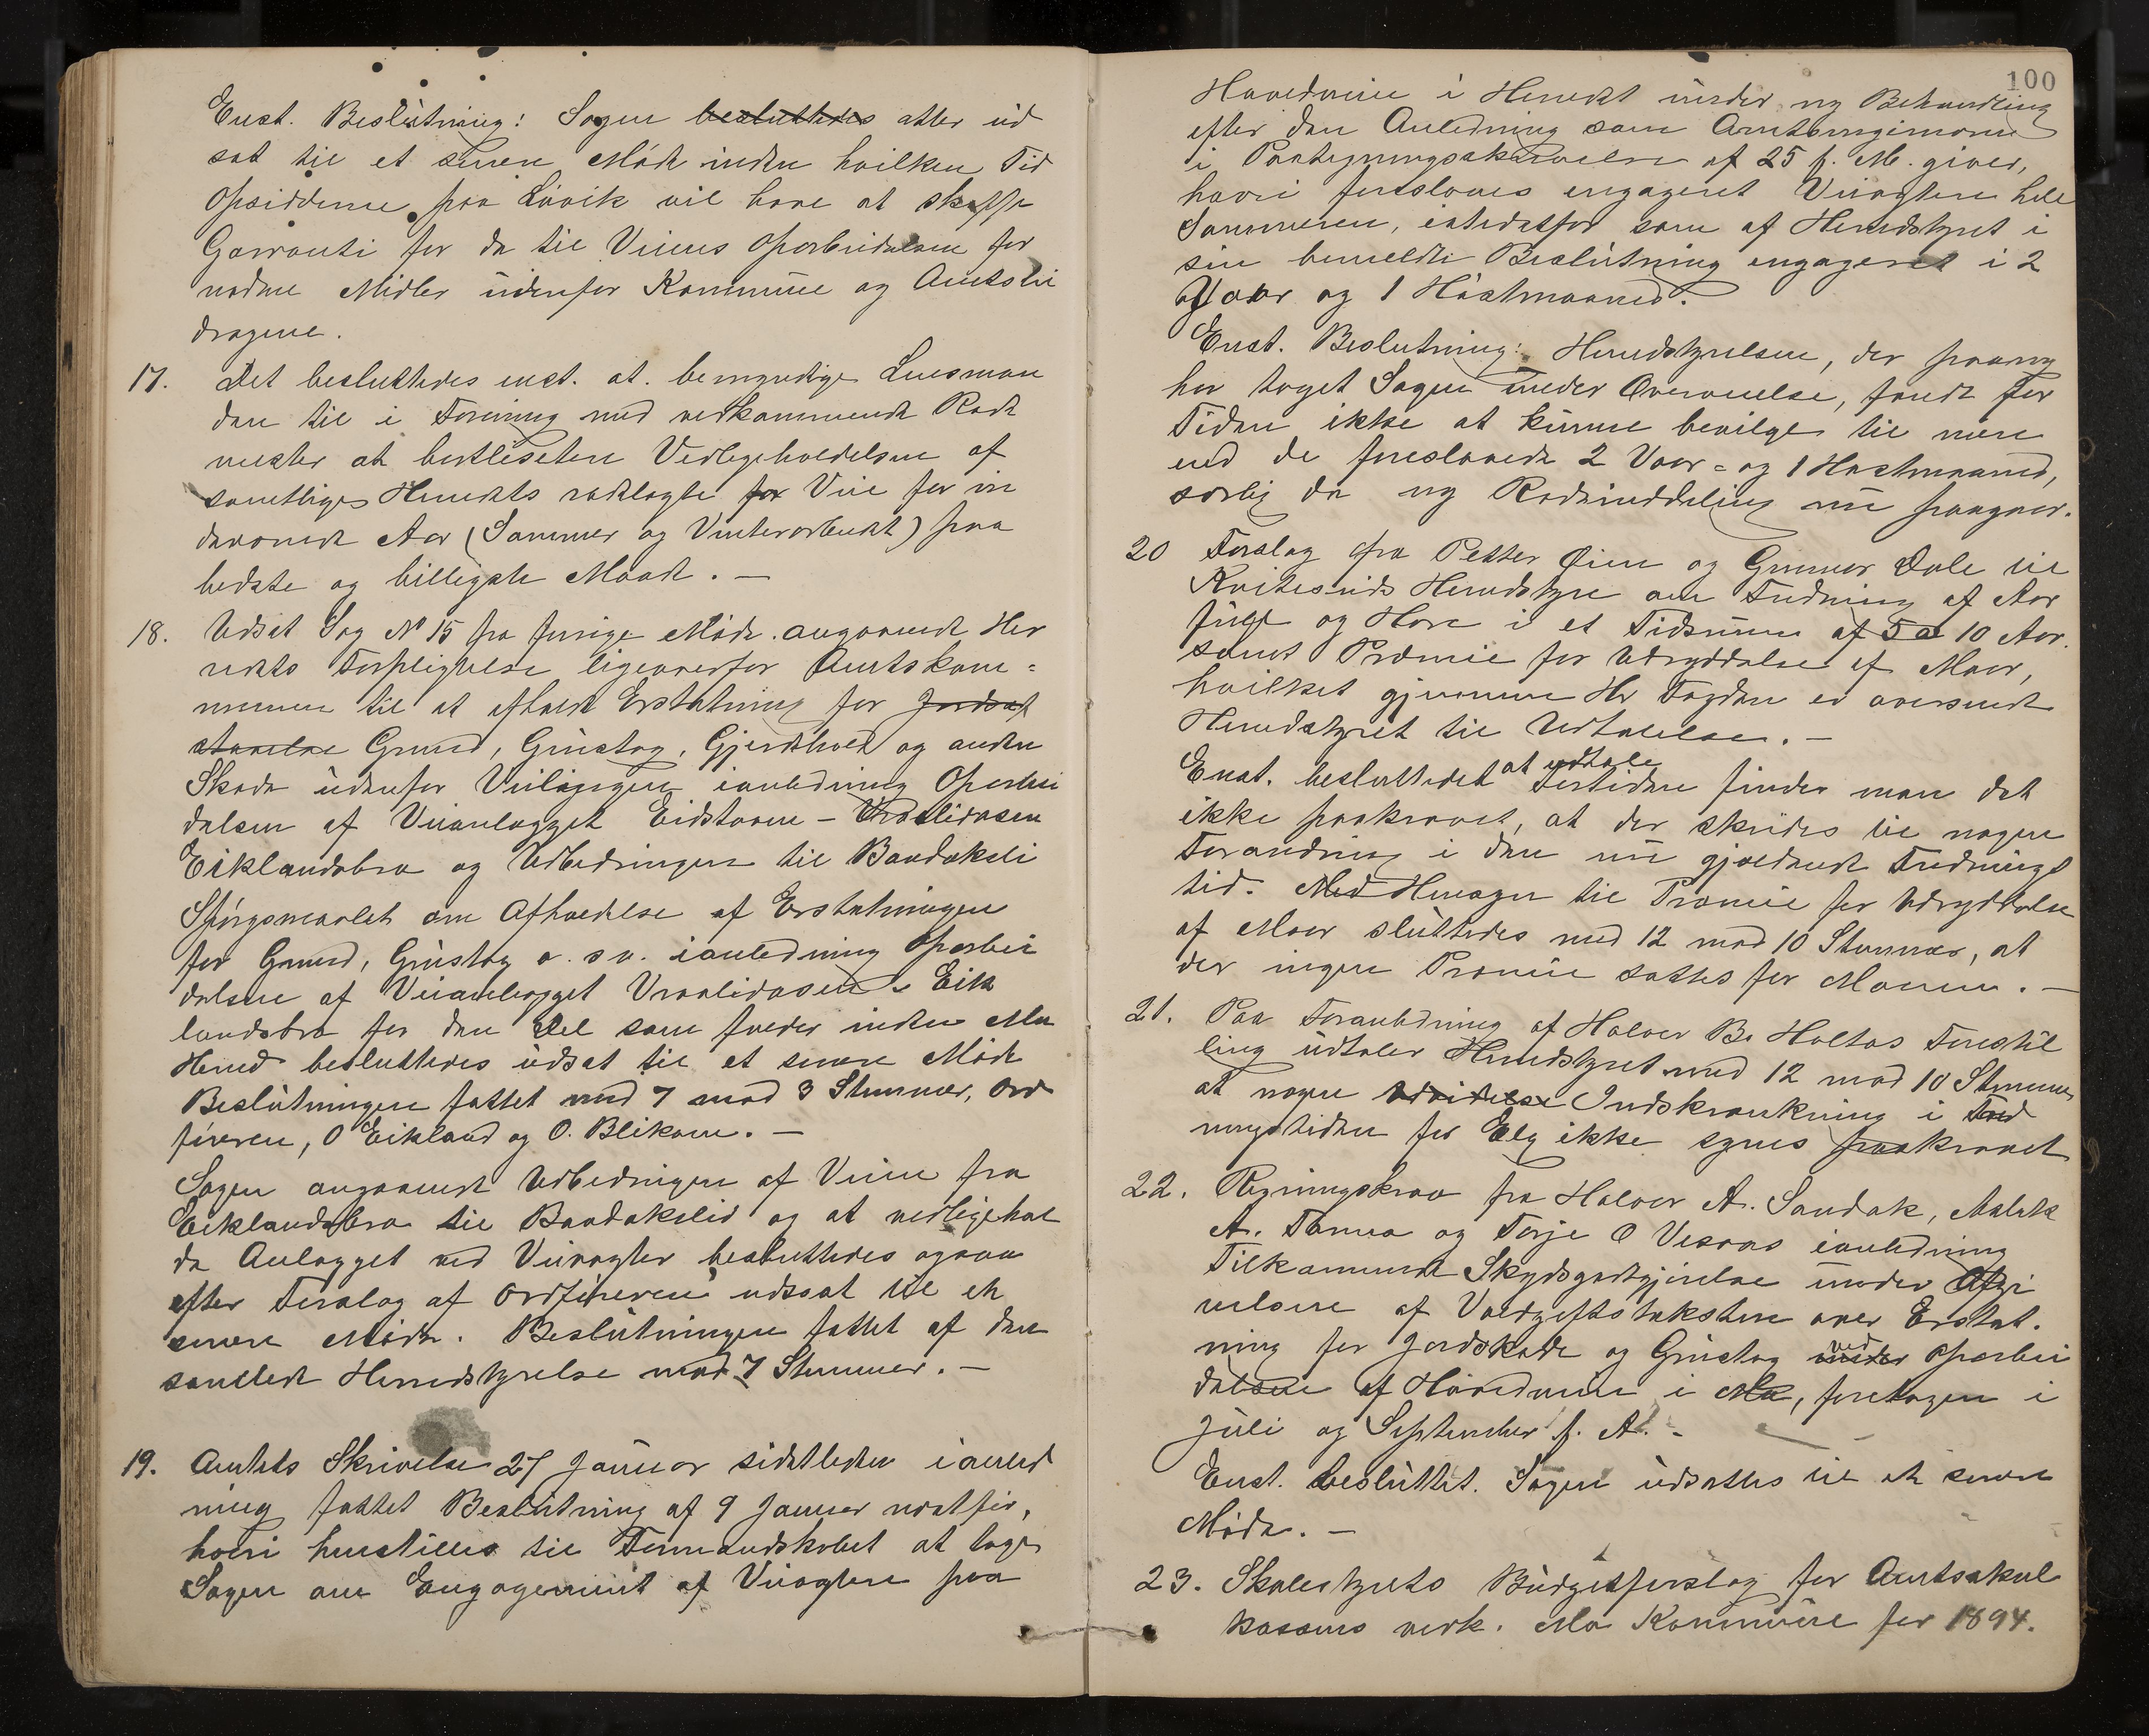 Enst. Beslutning: Sagen besluttedes atter ud
sat til et senere Møde inden hvilken Tid
Opsidderne paa Livik vil have at skaffe
Garranti for de til Veiens Oparbeidelsen for
nødne Midler udenfor Kommune og Amtsbi
dragene.
17. Det besluttedes enst. at bemyndige Lensman
den til i Forening med vedkommende Rode
mester at bortlisitere Vedligeholdelsen af
samtlige Herredets rodelagte Veie for in
deværende Aar (Sommer og Vinterarbeide) paa
bedste og billigste Maade. —
18. Udsat Sag No 15 fra forrige Møde angaaende Her
redets Forpligtelse ligeoverfor Amtskom=
munen til at afholde Erstatning for Jordaf
staaelse Grund, Grustag, Gjerdehold og anden
Skade udenfor Veilægget ianledning Oparbei
delsen af Veianlægget Eidstaaen - Vraaliosen
Eiklandsbro og Udbedringen til Bandaksli
Spörgsmaalet om Afholdelse af Erstatningen
for Grund, Grustag o. s. v. ianledning Oparbei
delsen af Veianlægget Vraaliosen - Eik
landsbro for den Del som falder inden Mo
Herred besluttedes udsat til et senere Møde
Beslutningen fattet med 7 mod 3 Stemmer, Ord
føreren, O Eikland og O. Blikom. —
Sagen angaaende Udbedringen af Veien fra
Eiklandsbro til Bandakslid og at vedligehol
de Anlægget ved Veivogter besluttedes ogsaa
efter Forslag af Ordføreren udsat til et
senere Møde. Beslutningen fattet af den
samlede Herredsstyrelse mod 7 Stemmer. —
19. Amtets Skrivelse 27 Januar sidstleden ianled
ning fattet Beslutning af 9 Januar næstfør,
hvori henstilles til Formandskabet at tage
Sagen om Engagement af Veivogtere paa
100
Hovedveiene i Herredet under ny Behandling
efter den Anledning som Amtsingeniøren
i Paategningsskrivelse af 25 f. M. giver,
hvori foreslaaes engageret Veivogtere hele
Sommeren, istedetfor som af Herredstyret i
sin bemeldte Beslutning engageret i 2
Vaar og 1 Høstmaaned.
Enst. Beslutning: Herredsstyrelsen, der paany
har taget Sagen under Overveielse, fandt for
Tiden ikke at kunne bevilge til mere
end de foreslaaede 2 Vaar= og 1 Høstmaaned,
særlig da ny Rodeinddeling nu paagaar.
20 Forslag fra Petter Øien og Gunnar Dale til
Kviteseids Herredstyre om Fredning af Aar
fugl og Hare i et Tidsrum af 5 a 10 Aar.
samt Præmie for Udryddelse af Maar,
hvilket gjennem Hr Fogden er oversendt
Herredstyret til Udtalelse. —
at udtale
Enst. besluttedet Fortiden finder man det
ikke paakrævet, at der skrides til nogen
Forandring i den nu gjældende Frednings
tid. Med Hensyn til Præmie for Udryddelse
af Maar sluttedes med 12 mod 10 Stemmer, at
der ingen Præmie sattes for Maaren. —
21. Paa Foranledning af Halvor B. Holtas Forestil
ling udtaler Herredstyret med 12 mod 10 Stemmer
at nogen Udvidelse Indskrænkning i Fred
ningstiden for Elg ikke synes paakrævet
22. Regningskrav fra Halvor A. Sandok, Aslak
A. Tomra og Torje O Vesaas ianledning
Tilkommende Skydsgodtgjørelse under Afgi
velsen af Voldgiftstaksten over Erstat.
ning for Jordskade og Grustag under ved Oparbei
delsen af Hovedveien i Mo, foretagen i
Juli og September f. A. -
Enst. besluttet. Sagen udsattes til et senere
Møde. —
23. Skolestyrets Budgetforslag for Amtsskole
kassens vedk. Mo Kommune for 1894.